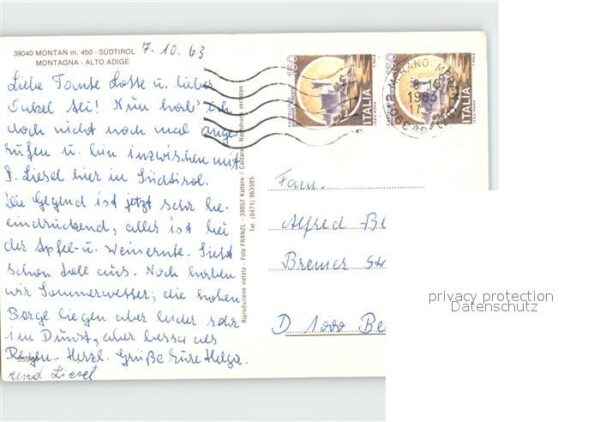 39040 MONTAN m. 450 - SÜDTIROL
MONTAGNA - ALTO ADIGE
7.10.83
Liebe Tante Lotte u. lieber
Onkel Ali! Nun hab' ich
doch nicht noch mal ange-
rufen u. bin inzwischen mit
Liesel hier in Südtirol.
Die Gegend ist jetzt sehr be-
eindruckend, alles ist bei
der Apfel- u. Weinernte. Sieht
schon toll aus. Noch haben
wir Sommerwetter; die hohen
Berge liegen aber leider sehr
im Dunst, aber besser als
Regen. Herzl. Grüße Eure Helga
und Liesel
Riproduzione vietata - Foto FRANZL - 39052 Kaltern / Caldaro - Nachdruck verboten
Tel. (0471) 963505
ITALIA
ITALIA
MERANO
1983
Fam.
Alfred Be
Bremer St
D 1000 Be
privacy protection
Datenschutz